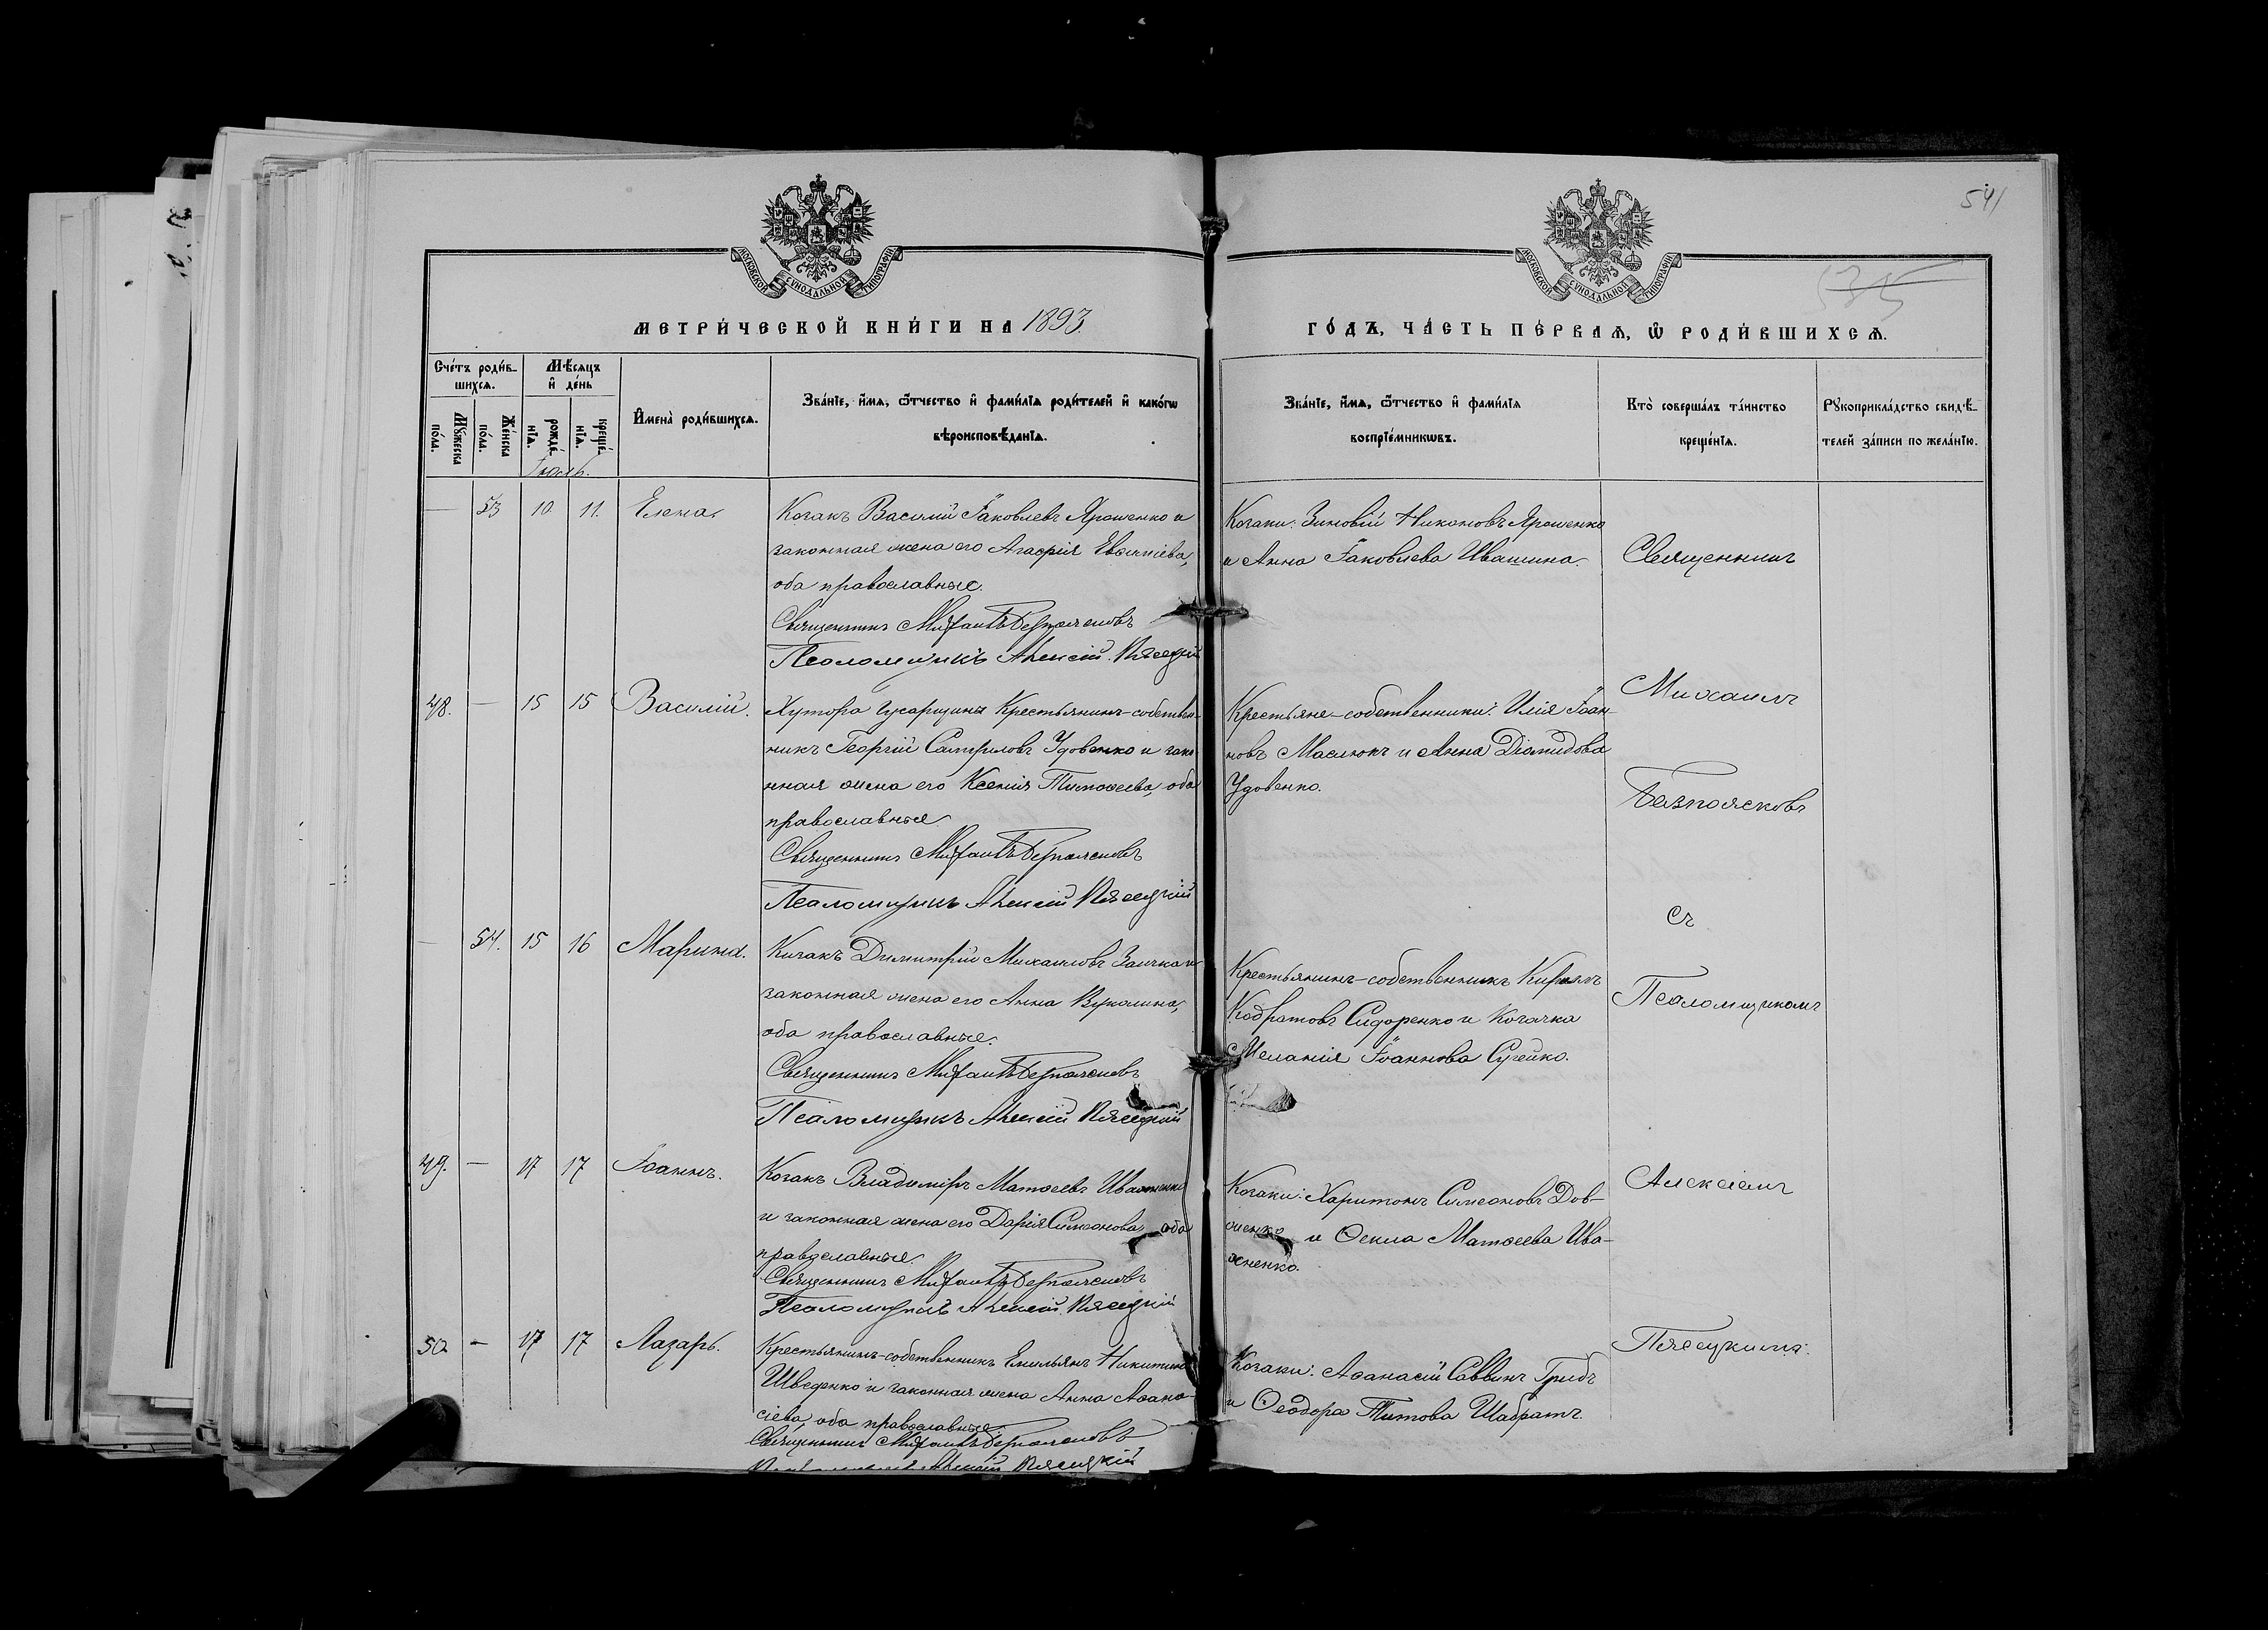 541
535
МОСКОВСКОЙ СУНОДАЛЬНОЙ ТИПОГРАФІИ
МОСКОВСКОЙ СУНОДАЛЬНОЙ ТИПОГРАФІИ
МЕТРИ́ЧЕСКОЙ КНИ́ГИ НА 1893
ГО́ДЪ, ЧА́СТЬ ПЕ́РВАѦ, Ѡ҆ РОДИ́ВШИХСѦ.
Сче́тъ роди́вшихсѧ.
Мꙋ́жеска по́ла.
Же́нска по́ла.
Мѣ́сѧцъ и҆ де́нь
рожде́нїѧ.
креще́нїѧ.
Іюль.
И҆мена̀ роди́вшихсѧ.
Зва́нїе, и҆́мѧ, ѻ҆́тчество и҆ фами́лїѧ роди́телей и҆ како́гѡ
вѣроисповѣ́данїѧ.
Зва́нїе, и҆́мѧ, ѻ҆́тчество и҆ фами́лїѧ
воспрїе́мникѡвъ.
Кто̀ соверша́лъ та́инство
креще́нїѧ.
Рꙋкоприкла́дство свидѣ́-
телей за́писи по жела́нїю.
— 53 10 11. Елена.
Козакъ Василій Іаковлевъ Ярошенко и
законная жена его Агафія Евѳиміева,
оба православные.
Священникъ Михаилъ Безпоясковъ
Псаломщикъ Алексій Пясецкій
Козаки: Зиновій Никоновъ Ярошенко
и Анна Іаковлева Ивашина.
48. — 15 15 Василій.
Хутора Гусарщины Крестьянинъ-собствен-
никъ Георгій Самуиловъ Удовенко и зако
нная жена его Ксенія Тимоѳеева, оба
православные
Священникъ Михаилъ Безпоясковъ
Псаломщикъ Алексій Пясецкій
Крестьяне-собственники: Илія Іоан-
новъ Маслюкъ и Анна Діомидова
Удовенко.
— 54. 15 16 Марина.
Козакъ Димитрій Михаиловъ Заичка и
законная жена его Анна Вуколина,
оба православные.
Священникъ Михаилъ Безпоясковъ
Псаломщикъ Алексій Пясецкій
Крестьянинъ-собственникъ Кириллъ
Кодратовъ Сидоренко и Козачка
Меланія Іоаннова Сугейко.
49. — 17 17 Іоаннъ.
Козакъ Владиміръ Матѳеевъ Ивахненко
и законная жена его Дарія Симеонова оба
православные.
Священникъ Михаилъ Безпоясковъ
Псаломщикъ Алексій Пясецкій
Козаки: Харитонъ Симеоновъ Дов-
женко и Ѳекла Матѳеева Ива-
хненко.
50 — 17 17 Лазарь.
Крестьянинъ-собственникъ Емельянъ Никитинъ
Шведенко и законная жена Анна Аѳана-
сіева, оба православные.
Священникъ Михаилъ Безпоясковъ
Псаломщикъ Алексій Пясецкій
Козаки: Аѳанасій Саввинъ Грибъ
и Ѳеодора Титова Шабратъ.
Священникъ
Михаилъ
Безпоясковъ
съ
Псаломщикомъ
Алексіемъ
Пясецкимъ.